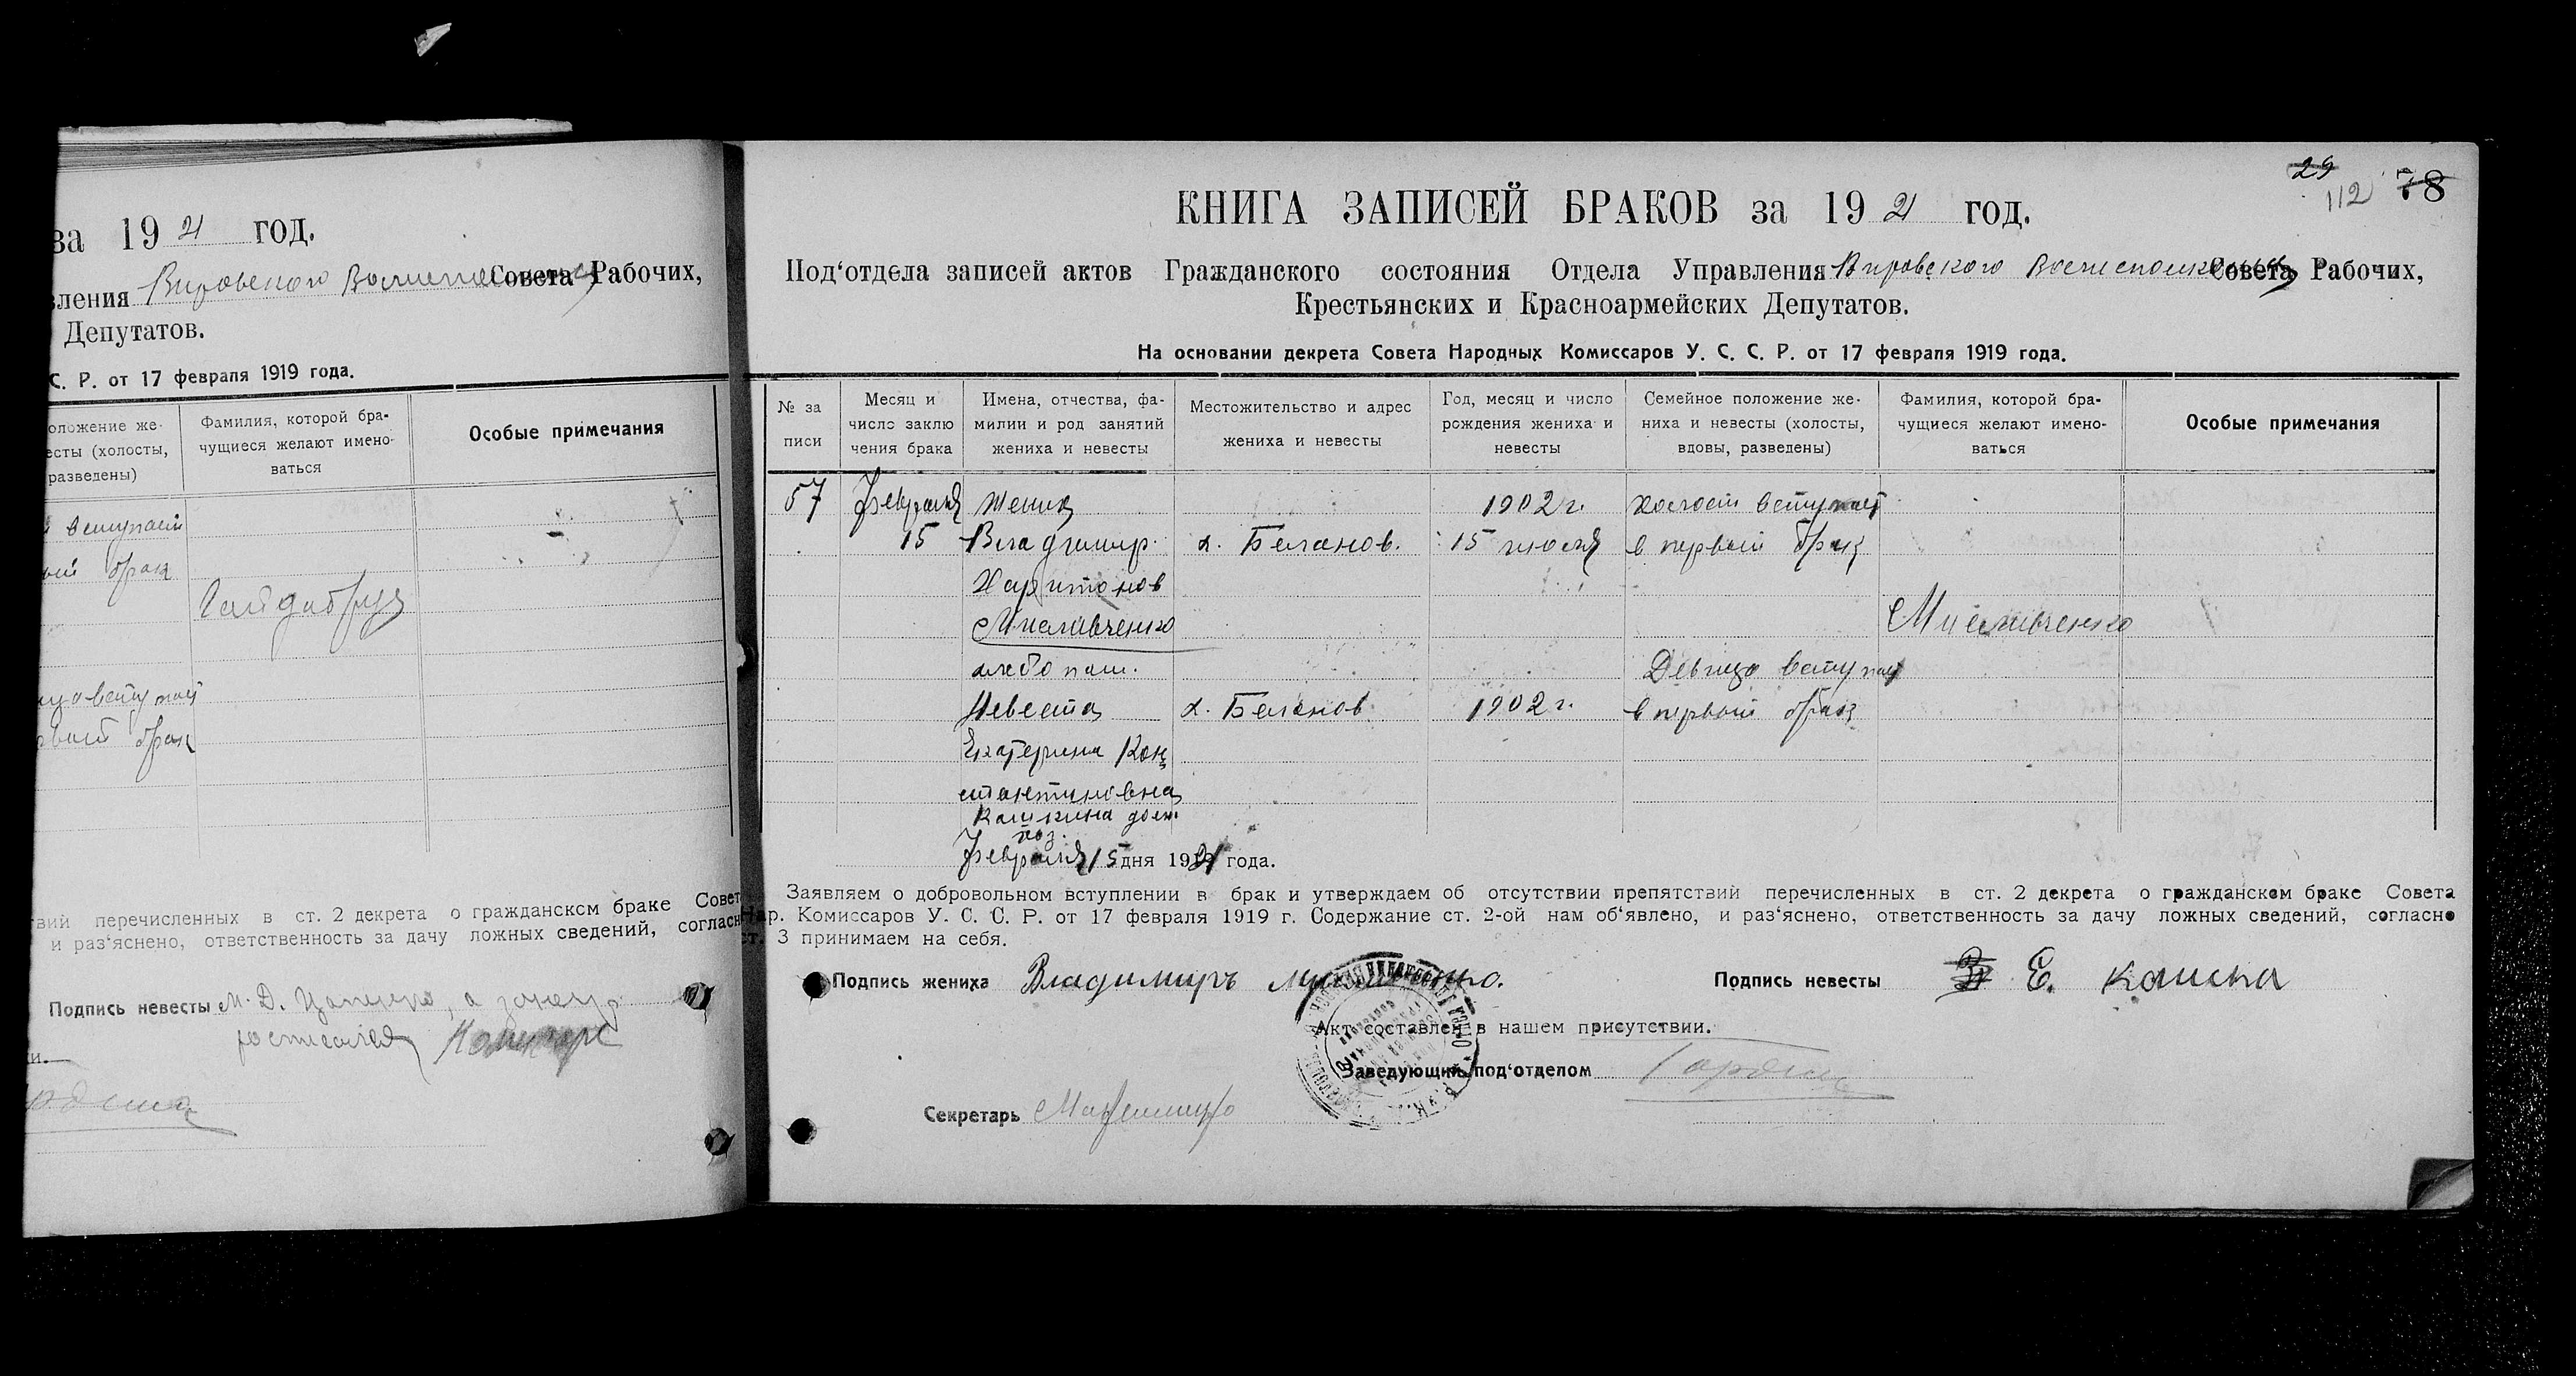 за 1921 год.
вления Вировского Совета Рабочих,
Депутатов.
С. Р. от 17 февраля 1919 года.
оложение же-
есты (холосты,
разведены)
Фамилия, которой бра-
чущиеся желают имено-
ваться
Особые примечания
вступает
ый брак
вступает
рвый брак
твий перечисленных в ст. 2 декрета о гражданском браке Совет
и раз'яснено, ответственность за дачу ложных сведений, согласн
Подпись невесты М. Д.
29
112 78
КНИГА ЗАПИСЕЙ БРАКОВ за 1921 год.
Под'отдела записей актов Гражданского состояния Отдела Управления Вировского Волисполкома Совета Рабочих,
Крестьянских и Красноармейских Депутатов.
На основании декрета Совета Народных Комиссаров У. С. С. Р. от 17 февраля 1919 года.
№ за
писи
Месяц и
число заклю
чения брака
Имена, отчества, фа-
милии и род занятий
жениха и невесты
Местожительство и адрес
жениха и невесты
Год, месяц и число
рождения жениха и
невесты
Семейное положение же-
ниха и невесты (холосты,
вдовы, разведены)
Фамилия, которой бра-
чущиеся желают имено-
ваться
Особые примечания
57 февраля Жених 1902 г. холост вступает
15 Владимир х. Беланов. 15 июля в первый брак
Харитонов
Миславченко Миславченко
хлебопаш. Девица вступает
Невеста х. Беланов 1902 г. в первый брак
Екатерина Кон
стантиновна
Кашкина дом.
Февраля 15 дня 1921 года.
Заявляем о добровольном вступлении в брак и утверждаем об отсутствии препятствий перечисленных в ст. 2 декрета о гражданском браке Совета
Нар. Комиссаров У. С. С. Р. от 17 февраля 1919 г. Содержание ст. 2-ой нам об'явлено, и раз'яснено, ответственность за дачу ложных сведений, согласно
ст. 3 принимаем на себя.
Подпись жениха Владимиръ
Подпись невесты Е. Кашка
Акт составлен в нашем присутствии.
Заведующий под'отделом
Секретарь